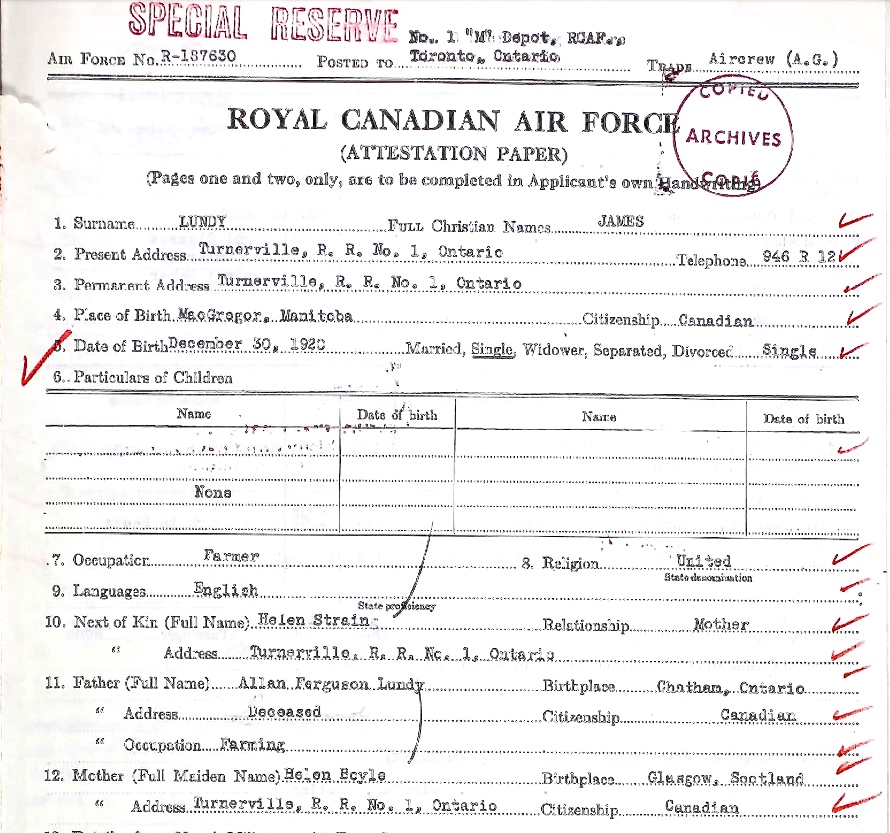 SPECIAL RESERVE No. 1 "M" Depot, RCAF.,
AIR FORCE No. R-187630 POSTED TO Toronto, Ontario TRADE Aircrew (A.G.)
COPIED
ARCHIVES
COPIÉ
ROYAL CANADIAN AIR FORCE
(ATTESTATION PAPER)
(Pages one and two, only, are to be completed in Applicant's own Handwriting)
1. Surname LUNDY FULL Christian Names JAMES
2. Present Address Turnerville, R. R. No. 1, Ontario Telephone 946 R 12
3. Permanent Address Turnerville, R. R. No. 1, Ontario
4. Place of Birth MacGregor, Manitoba Citizenship Canadian
5. Date of Birth December 30, 1920 Married, Single, Widower, Separated, Divorced Single
6. Particulars of Children
Name Date of birth Name Date of birth
None
7. Occupation Farmer 8. Religion United
State denomination
9. Languages English
State proficiency
10. Next of Kin (Full Name) Helen Strain Relationship Mother
" Address Turnerville, R. R. No. 1, Ontario
11. Father (Full Name) Allan Ferguson Lundy Birthplace Chatham, Ontario
" Address Deceased Citizenship Canadian
" Occupation Farming
12. Mother (Full Maiden Name) Helen Boyle Birthplace Glasgow, Scotland
" Address Turnerville, R. R. No. 1, Ontario Citizenship Canadian